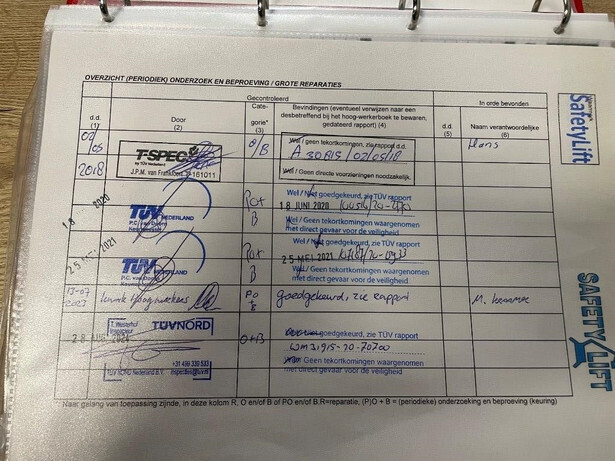 OVERZICHT (PERIODIEK) ONDERZOEK EN BEPROEVING / GROTE REPARATIES
Gecontroleerd
In orde bevonden
d.d.
(1)
Door
(2)
Cate-
gorie*
(3)
Bevindingen (eventueel verwijzen naar een
desbetreffend bij het hoog-werkerboek te bewaren,
gedateerd rapport) (4)
d.d.
(5)
Naam verantwoordelijke
(6)
02/
05
2018
T-SPEC
by TÜV Nederland
J.P.M. van Frankfoort
161011
O/B
Wel / geen tekortkomingen, zie rapport d.d.
A 30815 / 02/05/18
Wel / Geen directe voorzieningen noodzakelijk.
Hans
18 2020
TÜV NEDERLAND
P.C. van Doorn
Keurmeester
PO+
B
Wel / goedgekeurd, zie TÜV rapport
18 JUNI 2020
Wel / Geen tekortkomingen waargenomen
met direct gevaar voor de veiligheid
25 MEI 2021
TÜV NEDERLAND
P.C. van Doorn
Keurmeester
PO+
B
Wel / Niet goedgekeurd, zie TÜV rapport
25 MEI 2021
Wel / Geen tekortkomingen waargenomen
met direct gevaar voor de veiligheid
13-07
2023
PO
+
B
Goedgekeurd, zie Rapport
M.
T. Westerhof
Inspecteur
TÜVNORD
28 AUG
+31 499 339 533
TÜV NORD Nederland B.V.
inspecties@tuv.nl
O+B
goedgekeurd, zie TÜV rapport
Geen tekortkomingen waargenomen
met direct gevaar voor de veiligheid
* Naar gelang van toepassing zijnde, in deze kolom R, O en/of B of PO en/of B.R=reparatie, (P)O + B = (periodieke) onderzoeking en beproeving (keuring)
SafetyLift
SAFETY LIFT